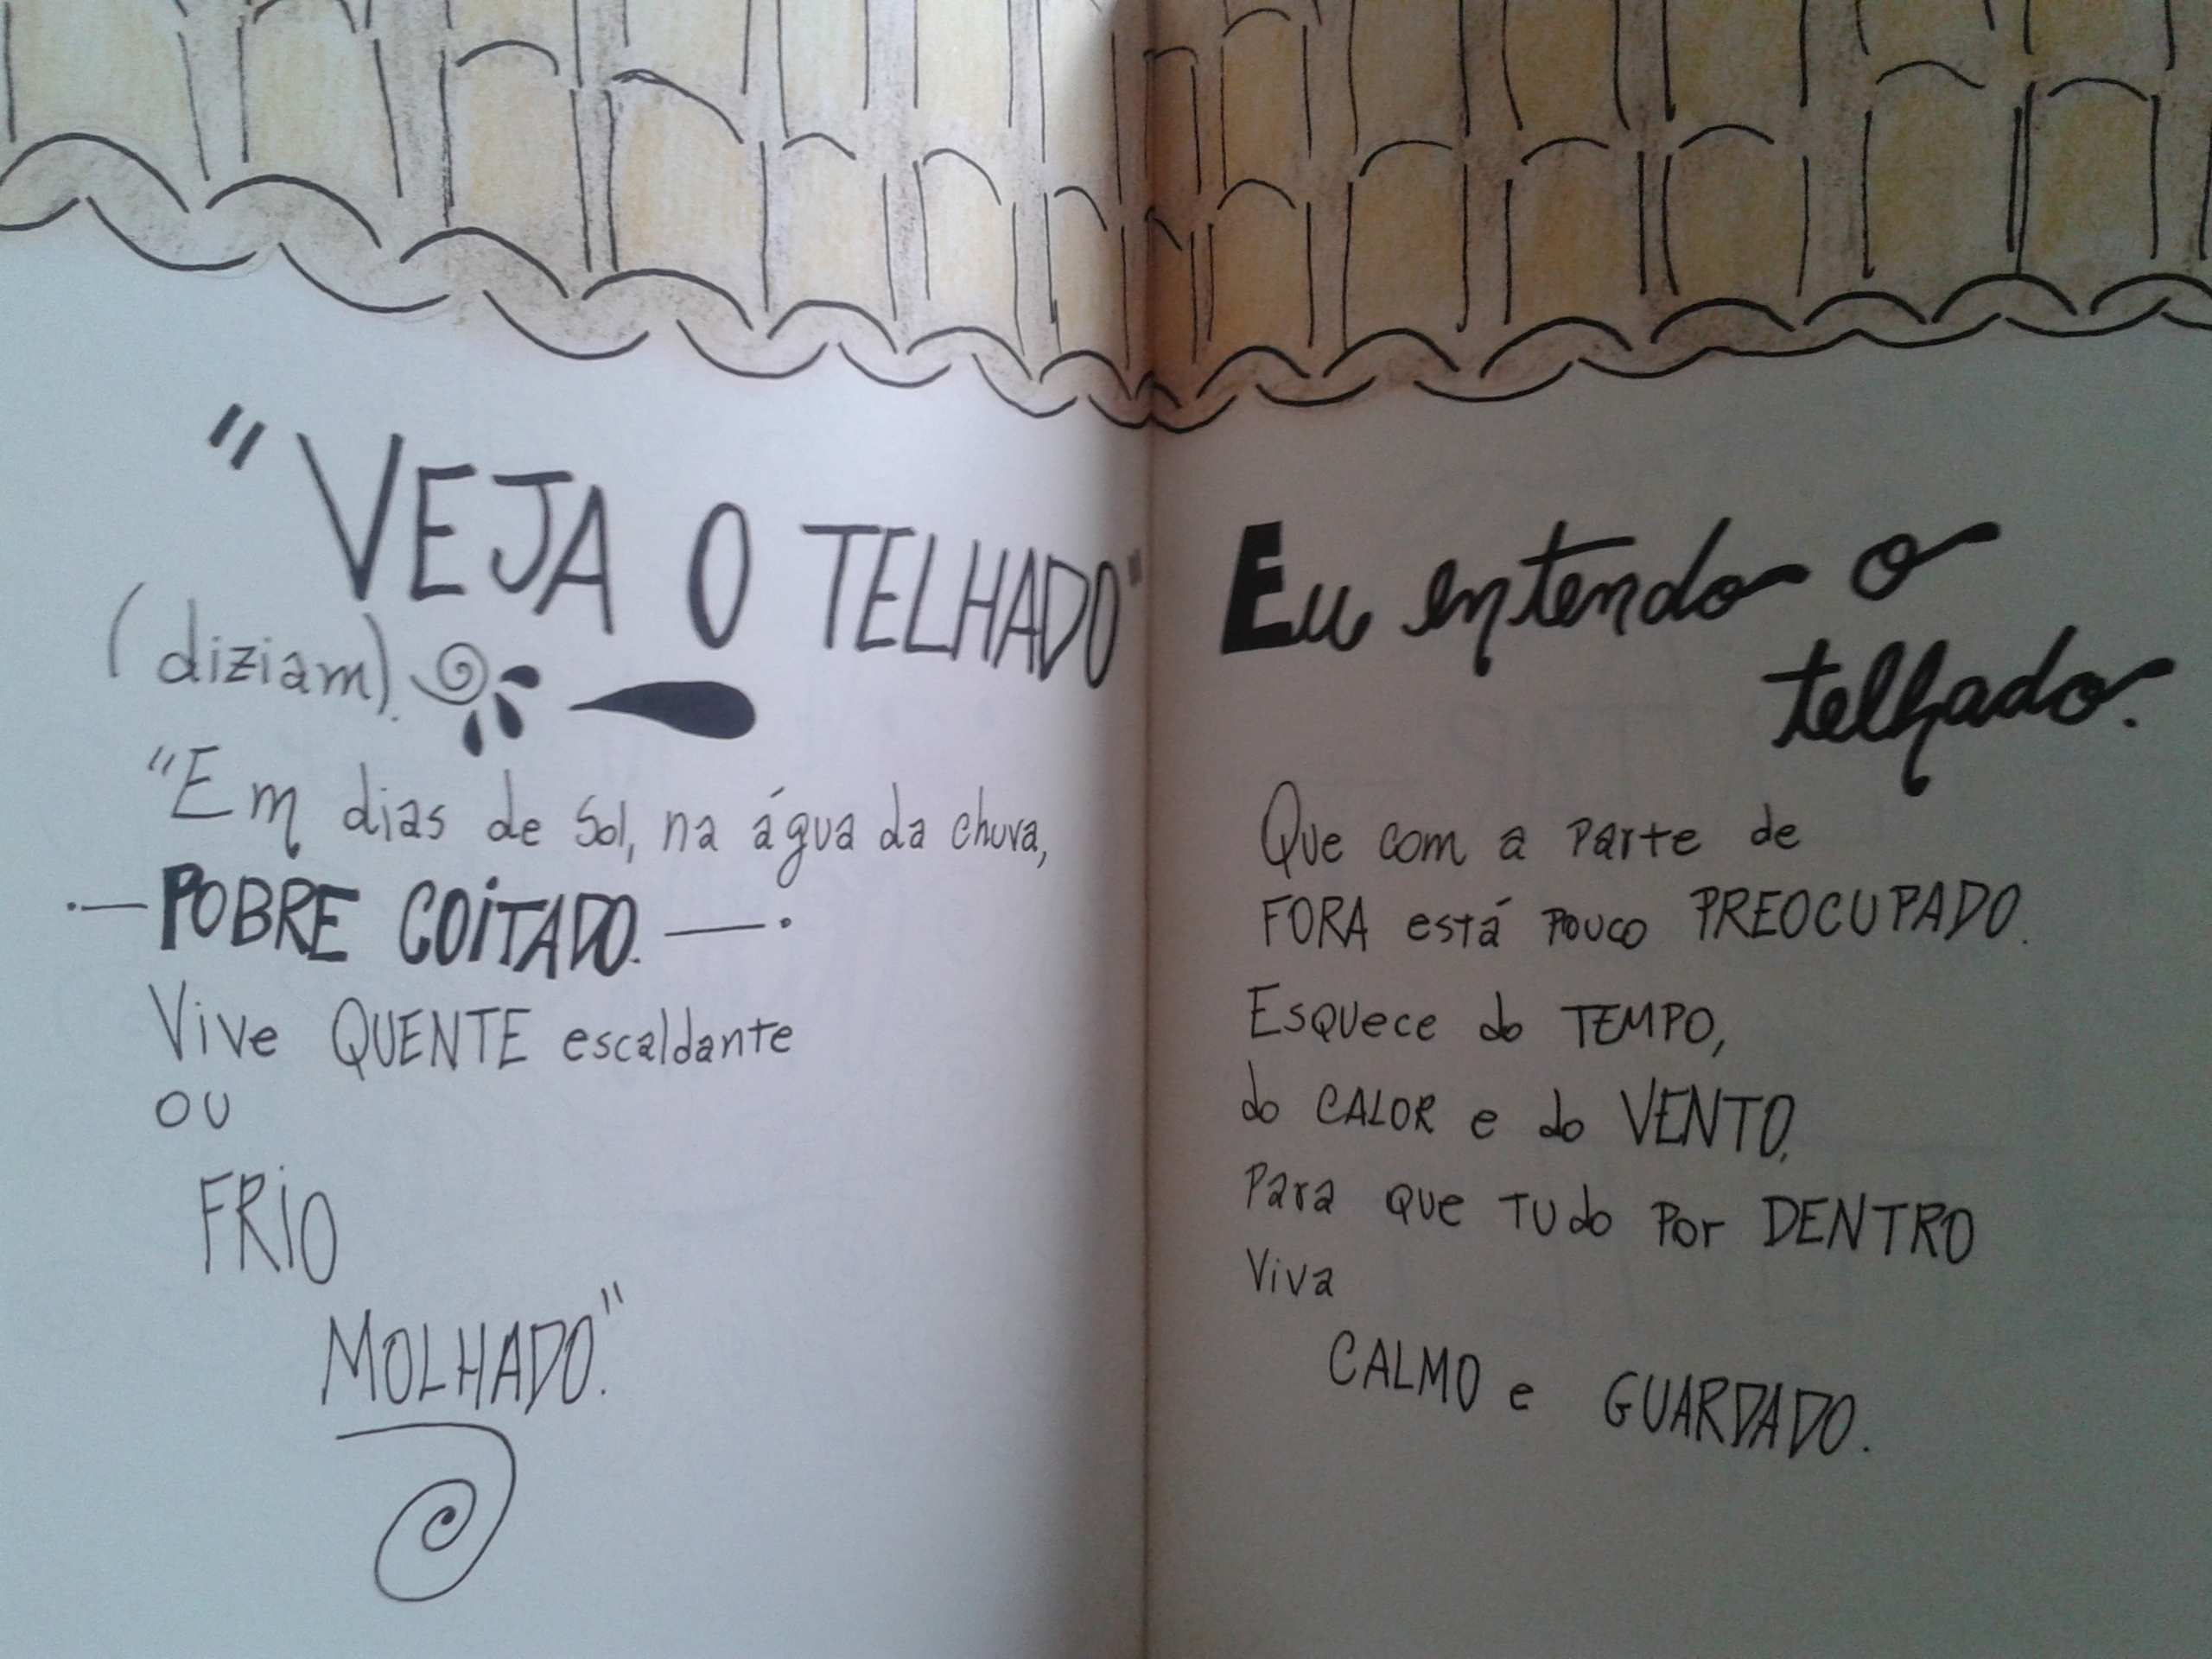 "VEJA O TELHADO"
(diziam).
"Em dias de Sol, na água da chuva,
POBRE COITADO.
Vive QUENTE escaldante
OU
FRIO
MOLHADO."
Eu entendo o
telhado.
Que com a parte de
FORA está pouco PREOCUPADO.
Esquece do TEMPO,
do CALOR e do VENTO,
Para que tudo por DENTRO
Viva
CALMO e GUARDADO.